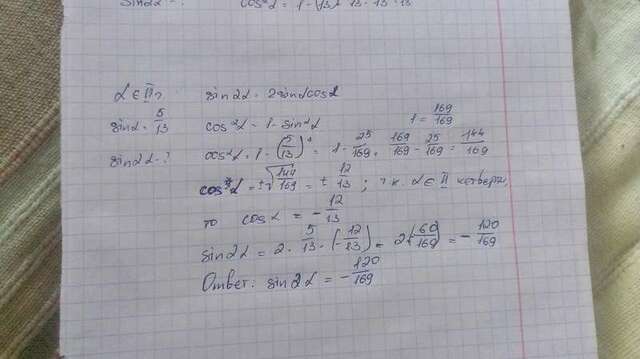 sin2α - ? cos²α = 1 -
α ∈ II ч. sin2α = 2sinαcosα
sinα = 5/13 cos²α = 1 - sin²α 1 = 169/169
sin2α - ? cos²α = 1 - (5/13)² = 1 - 25/169 = 169/169 - 25/169 = 144/169
cosα = ±√144/169 = ± 12/13 ; т.к. α ∈ II четверти,
то cosα = - 12/13
sin2α = 2 · 5/13 · (- 12/13) = 2(- 60/169) = - 120/169
Ответ: sin2α = - 120/169